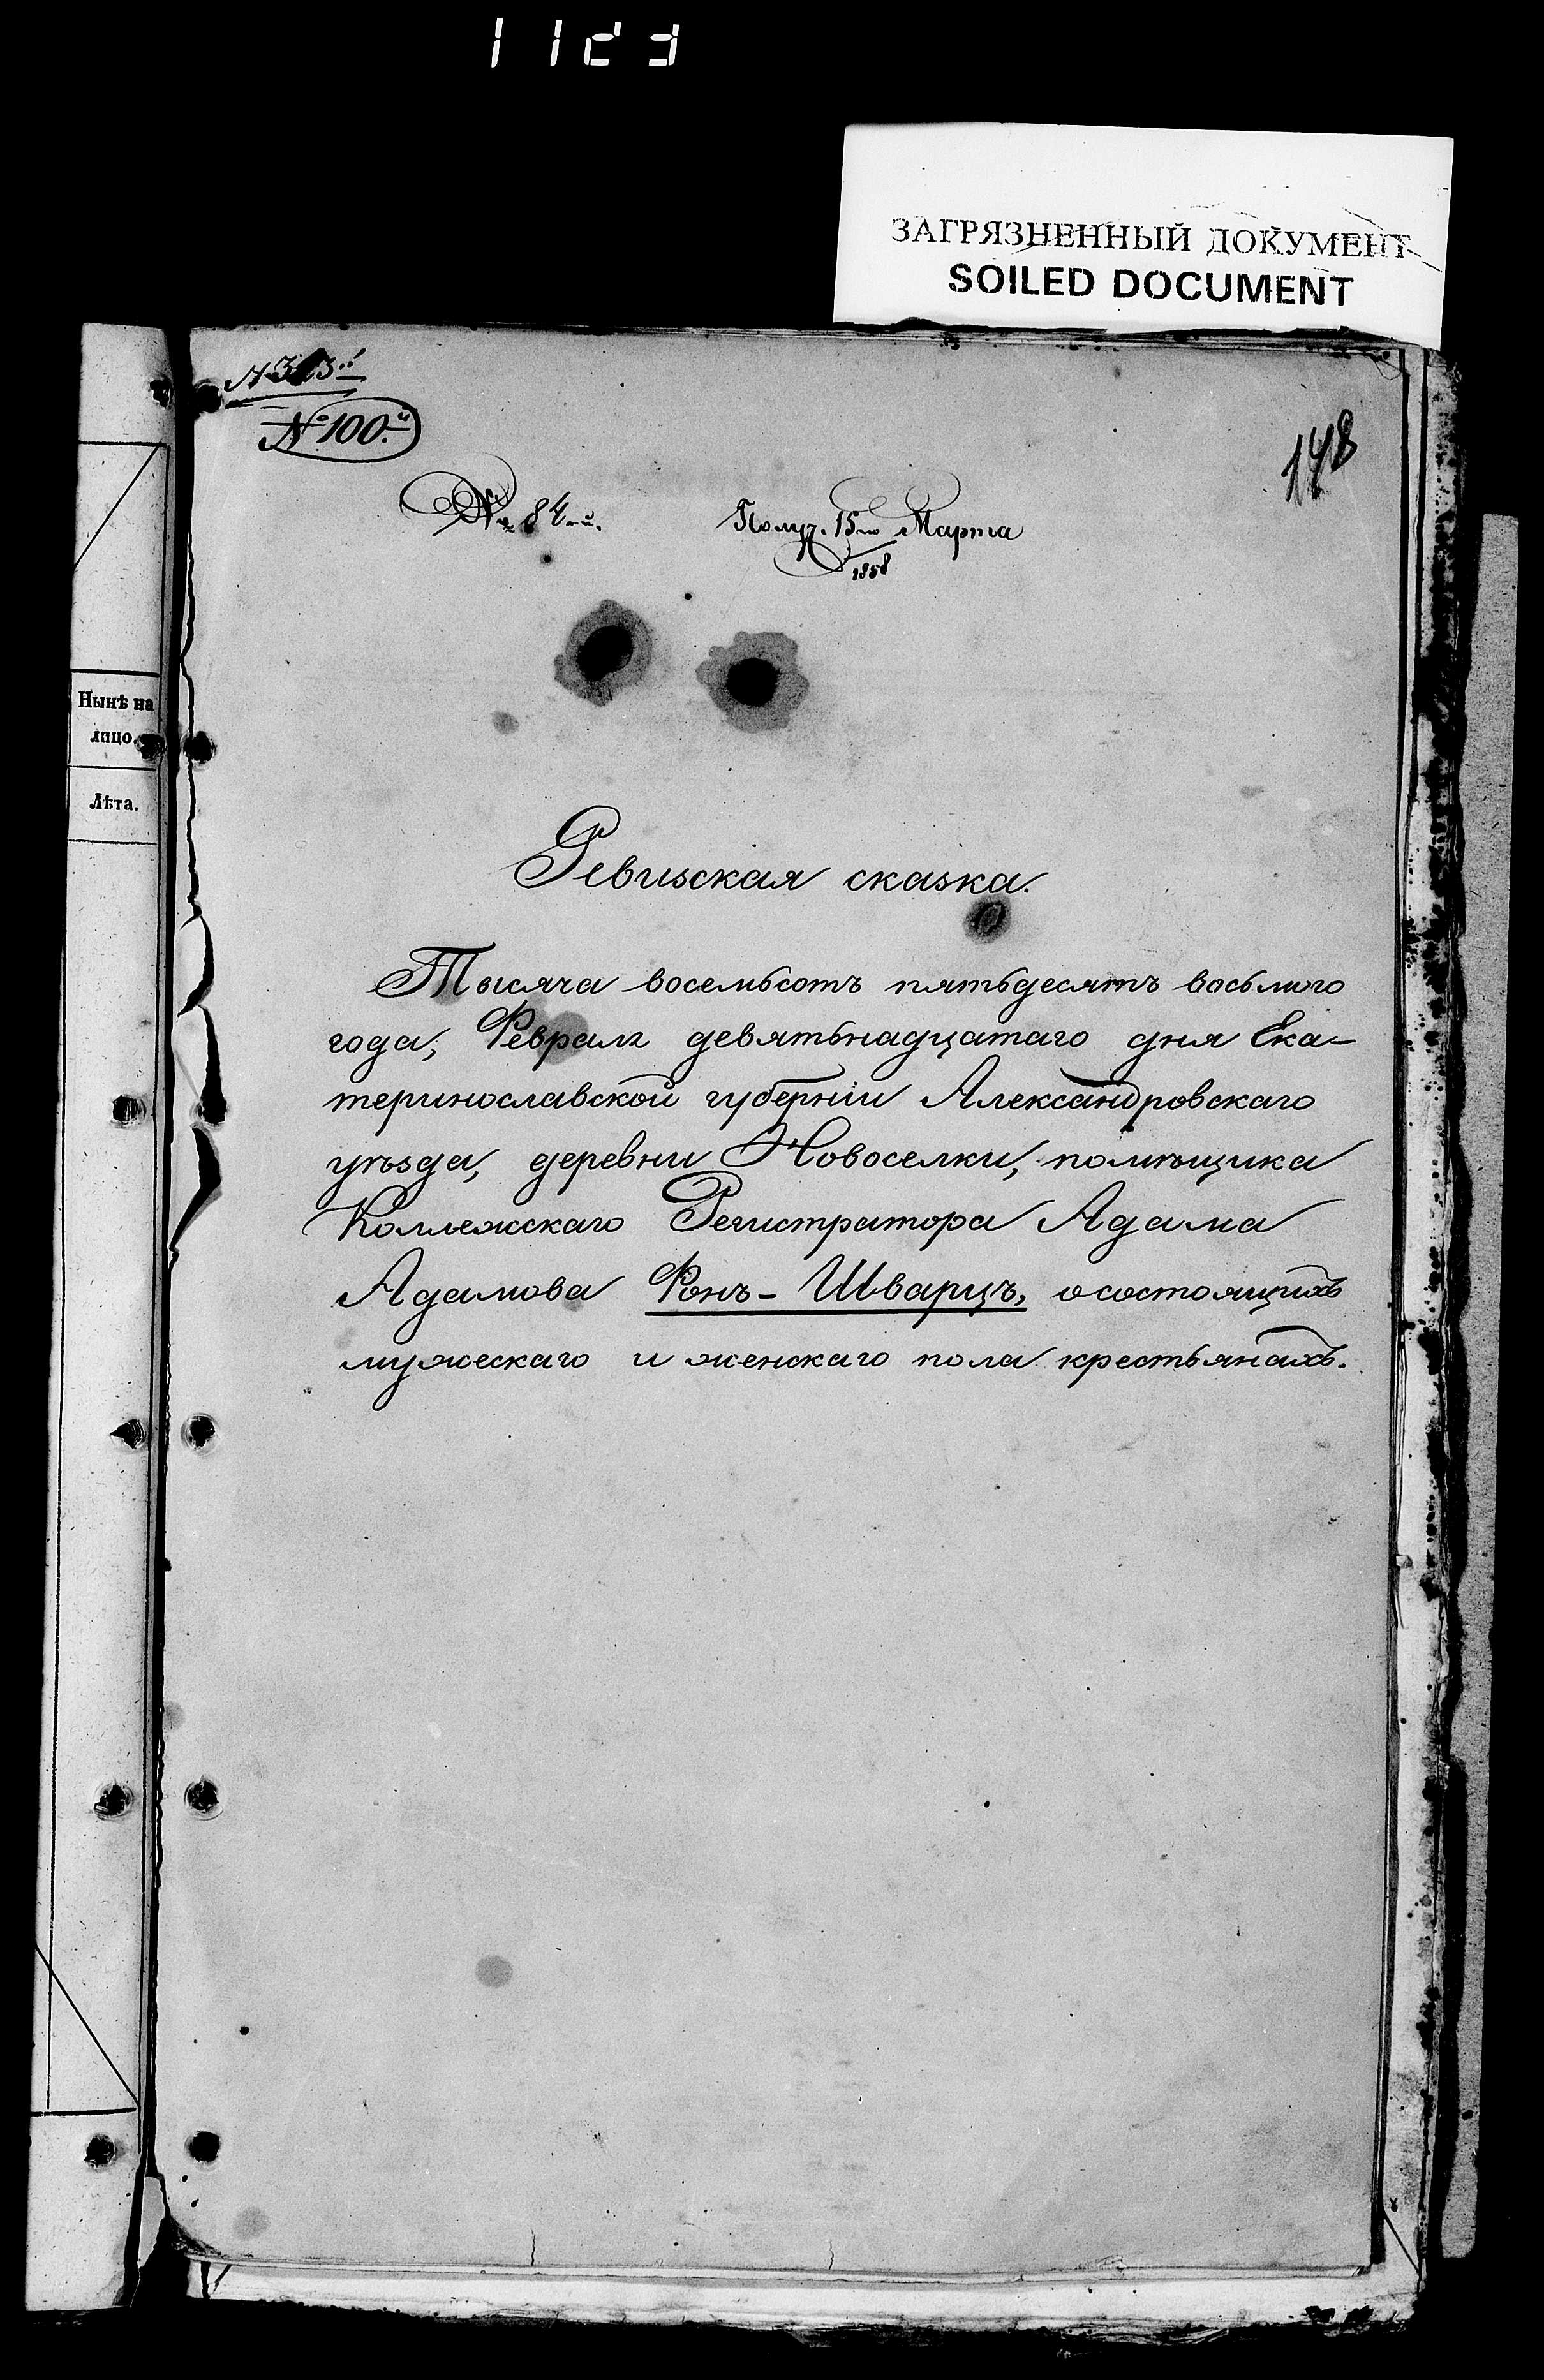 ЗАГРЯЗНЕННЫЙ ДОКУМЕНТ
SOILED DOCUMENT
№100.й
148
№ 84й.
Получ. 15го Марта
1858
Нынѣ на
лицо.
Лѣта.
Ревизская сказка.
Тысяча восемьсотъ пятьдесятъ восьмого
года, Февраля девятьнадцатаго дня Ека-
теринославской губерніи Александровскаго
уѣзда, деревни Новоселки, помѣщика
Коллежскаго Регистратора Адама
Адамова Фонъ-Шварцъ, о состоящихъ
мужескаго и женскаго пола крестьянахъ.